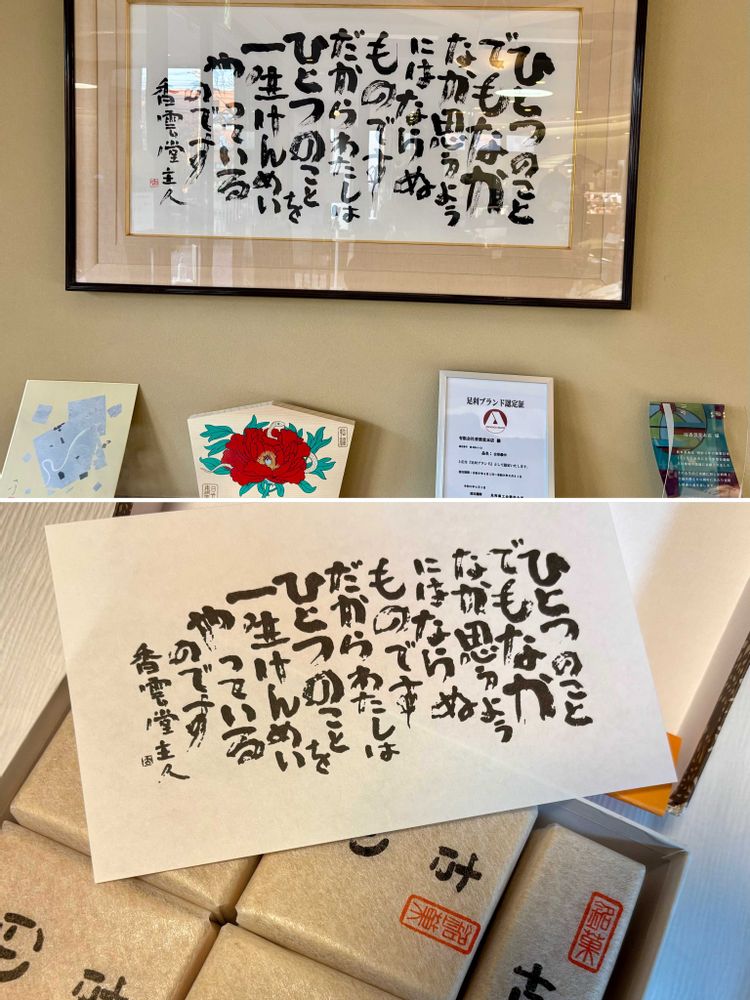 ひとつのこと
でもなか
なか思うよう
にはならぬ
ものです
だからわたしは
ひとつのことを
一生けんめい
やっている
のです
香雲堂主人
足利ブランド認定証
有限会社香雲堂本店 様
品名：古印最中
香雲堂本店 様
ひとつのこと
でもなか
なか思うよう
にはならぬ
ものです
だからわたしは
ひとつのことを
一生けんめい
やっている
のです
香雲堂主人
銘菓
銘菓